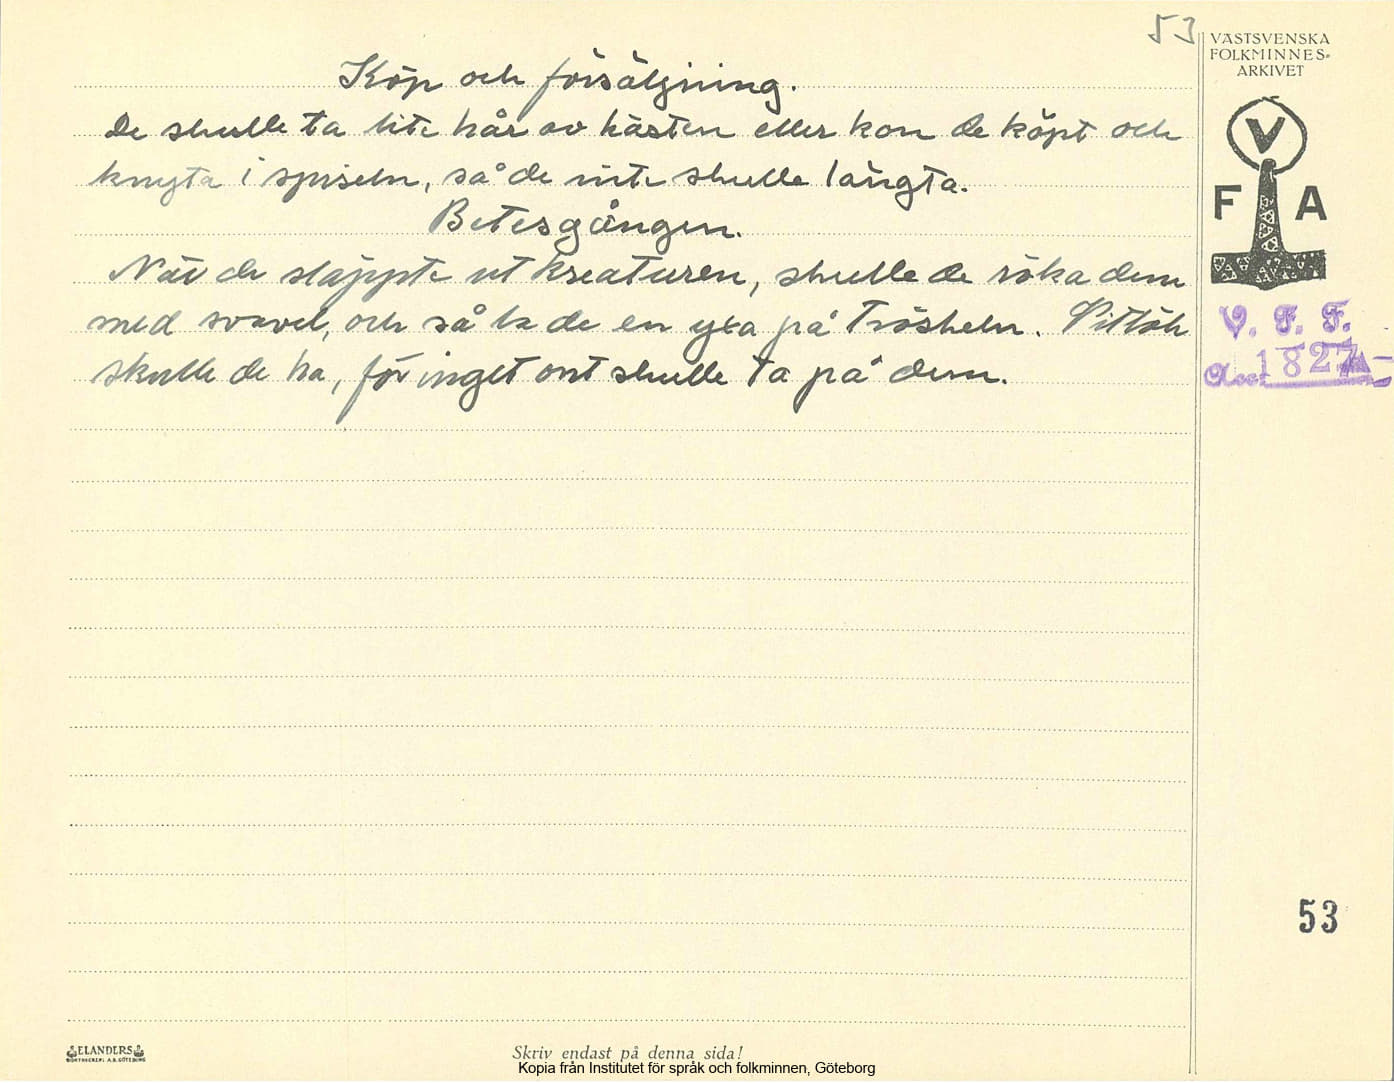 53
VÄSTSVENSKA
FOLKMINNES-
ARKIVET
V
F A
V. F. F.
Acc. 1827
Köp och försäljning.
De skulle ta lite hår av hästen eller kon de köpt och
knyta i spiseln, så de inte skulle längta.
Betesgången.
När de släppte ut kreaturen, skulle de röka dem
med svavel, och så la de en yxa på tröskeln. Vitlök
skulle de ha, för inget ont skulle ta på dem.
53
ELANDERS
BOKTRYCKERI A.B. GÖTEBORG
Skriv endast på denna sida!
Kopia från Institutet för språk och folkminnen, Göteborg